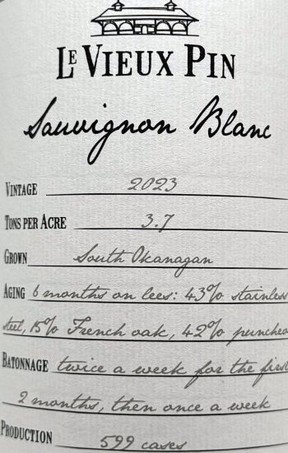 LE VIEUX PIN
Sauvignon Blanc
VINTAGE 2023
TONS PER ACRE 3.7
GROWN South Okanagan
AGING 6 months on lees: 43% stainless
steel, 15% French oak, 42% puncheo
BATONNAGE twice a week for the first
2 months, then once a week
PRODUCTION 599 cases